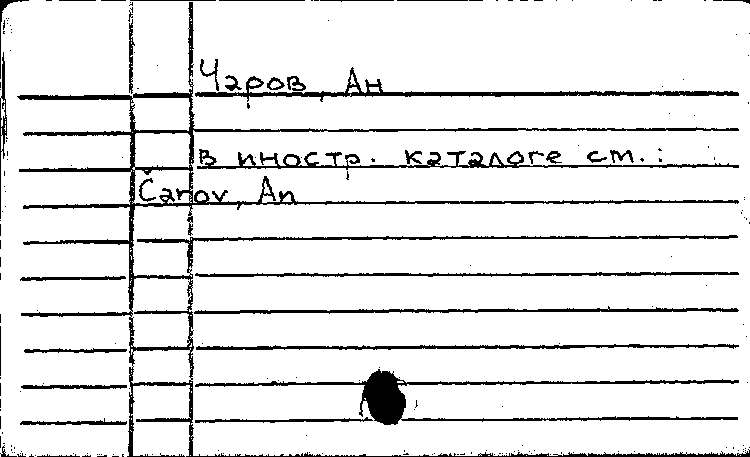 Чаров, Ан
в иностр. каталоге см.:
Čarov, An